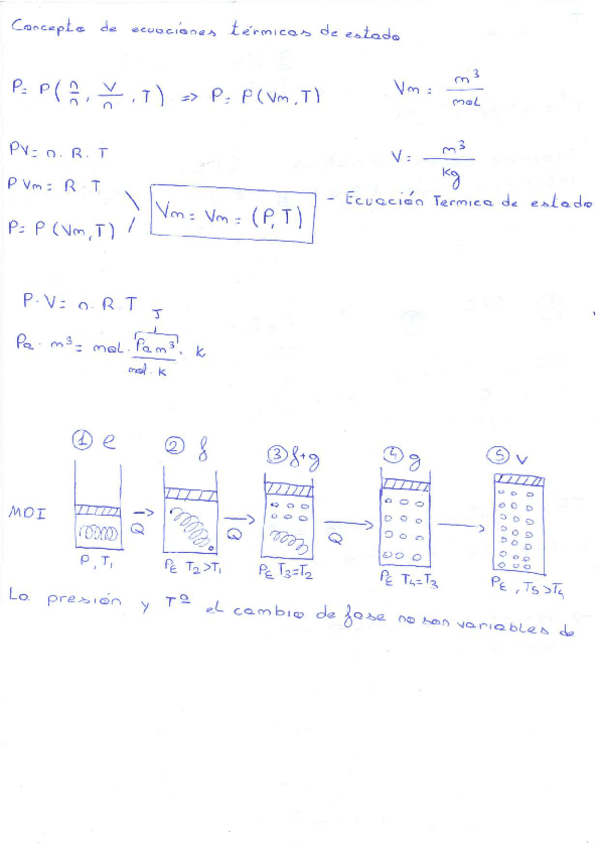 Concepto de ecuaciones térmicas de estado
P = P(n/n, V/n, T) => P = P(Vm, T)
Vm = m³/mol
PV = n. R. T
V = m³/kg
P Vm = R. T
P = P(Vm, T)
Vm = Vm = (P, T) - Ecuación Termica de estado
P. V = n. R. T
J
Pa. m³ = mol. Pa m³/mol. K . K
① l ② f ③ f+g ④ g ⑤ v
MOI Q Q Q
P, T₁ PE T₂>T₁ PE T₃=T₂ PE T₄=T₃ PE, T₅>T₄
La presión y Tª el cambio de fase no son variables de